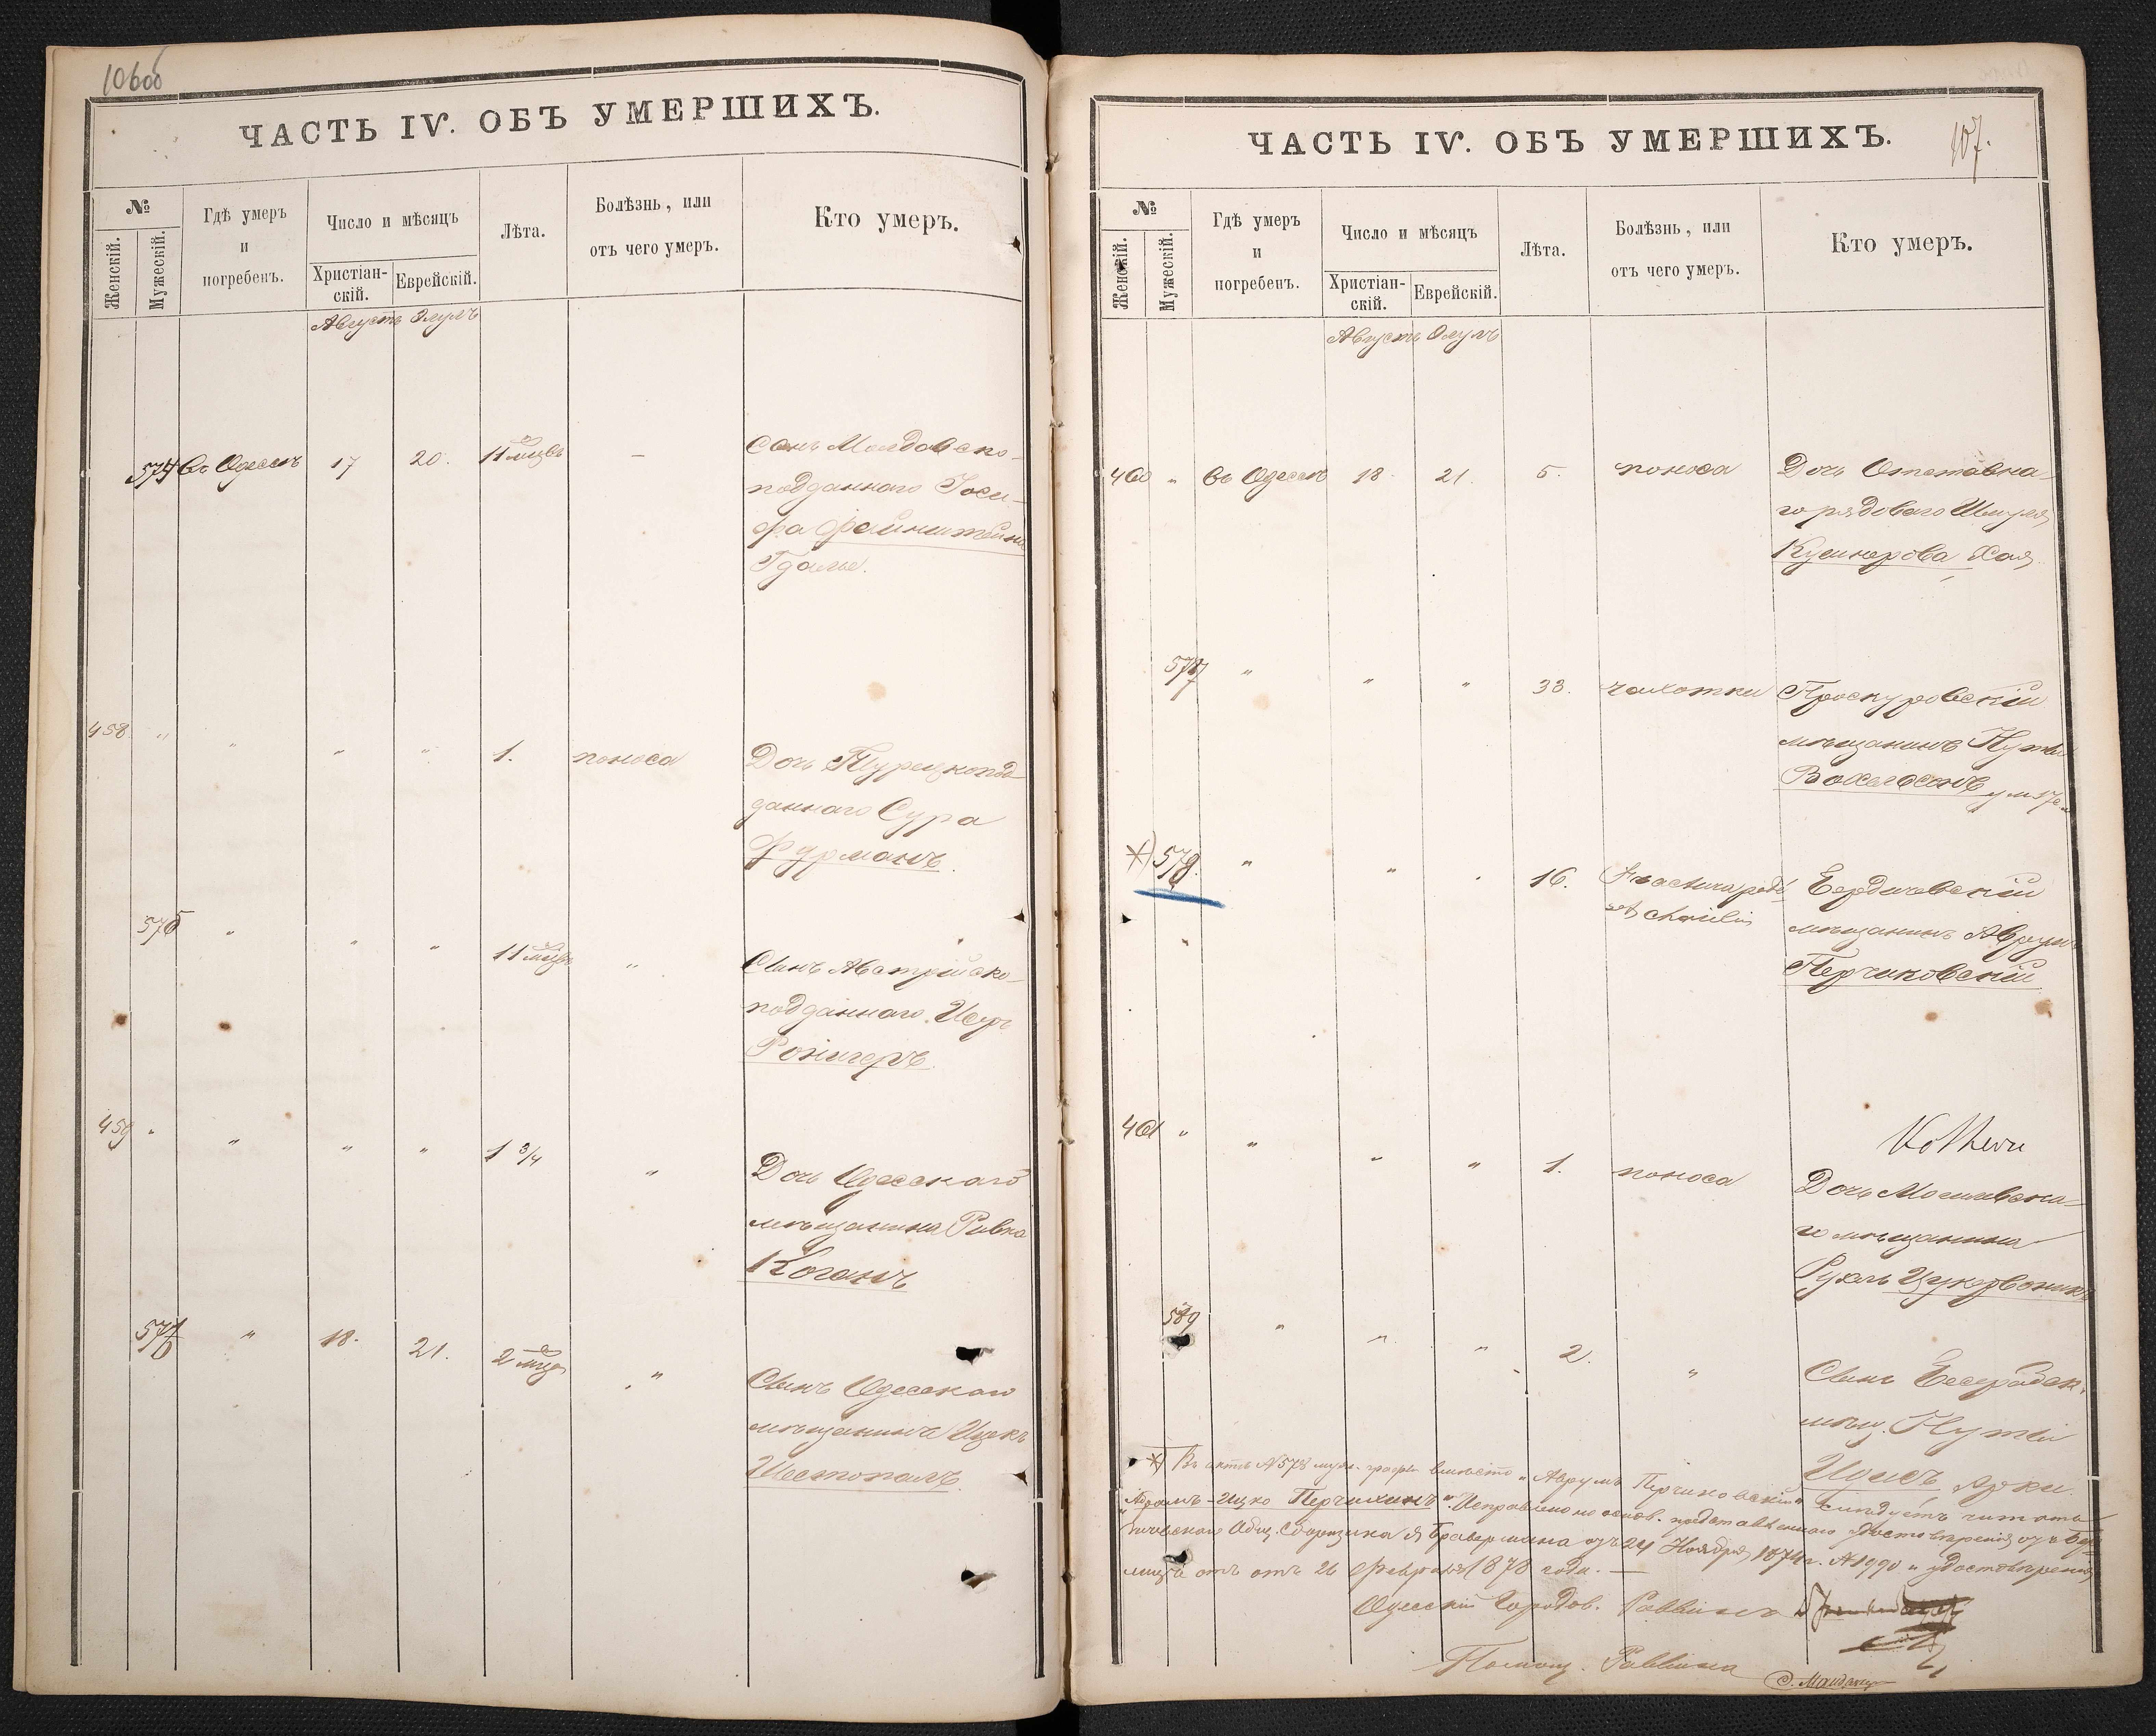 106об
ЧАСТЬ IV. ОБЪ УМЕРШИХЪ.
№
Женскій.
Мужескій.
Гдѣ умеръ
и
погребенъ.
Число и мѣсяцъ
Христіан-
скій.
Еврейскій.
Лѣта.
Болѣзнь, или
отъ чего умеръ.
Кто умеръ.
Августъ Элулъ
574 въ Одессѣ 17 20. 11 мцвъ — Сынъ Молдавско-
подданнаго Іоси-
фа Файнштейна
Гдалье.
458. " " " " 1. поноса Дочь Турецкопод-
даннаго Сура
Фурманъ.
575 " " " 11 мцвъ " Сынъ Австрійско-
подданнаго
459 " " " " 1 3/4 " Дочь Одесскаго
мѣщанина Ривка
Коганъ
576 " 18. 21. 2 мца " Сынъ Одесскаго
мѣщанина Ицекъ
Шестопалъ.
ЧАСТЬ IV. ОБЪ УМЕРШИХЪ.
107.
№
Женскій.
Мужескій.
Гдѣ умеръ
и
погребенъ.
Число и мѣсяцъ
Христіан-
скій.
Еврейскій.
Лѣта.
Болѣзнь, или
отъ чего умеръ.
Кто умеръ.
Августъ Элулъ
460 " въ Одессѣ 18. 21. 5. поноса Дочь Отставна-
го рядоваго Шмуля
Кушнерова Хая
577 " " " 33. чахотки Проскуровскій
мѣщанинъ Нутъ
ум 17
*) 578. " " " 16. Бердичевскій
мѣщанинъ Аврумъ
Перчиковскій
461 " " " " 1. поноса Дочь Могилевска-
го мѣщанина
Рухль Цукервоникъ
579 " " " 2. " Сынъ
мѣщ. Нутъ
*) Въ актѣ №578 муж. графы вмѣсто „Аврумъ Перчиковскій" слѣдуетъ читать
„Абрамъ-Ицко Перчихинъ". Исправлено на основ. представленнаго удостовѣренія отъ Бер-
дичевскаго 24 Ноября 1874 г. №1990 и удостовѣренія
отъ 26 Февраля 1878 года. —
Одесскій Городов. Раввинъ
Помощ. Раввина